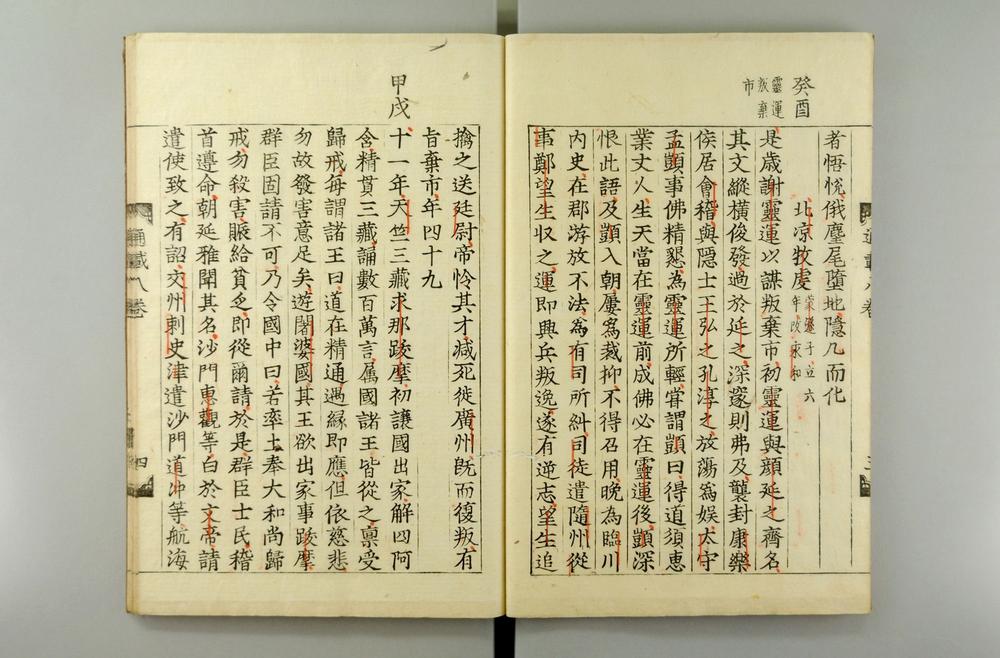 癸酉
靈運
叛棄
市
者悟悅俄麈尾墮地隱几而化
北凉牧虔
茂虔子立六
年改永和
是歲謝靈運以謀叛棄市初靈運與顔延之齊名
其文縱横俊發過於延之深邃則弗及襲封康樂
侯居會稽與隠士王弘之孔淳之放蕩爲娱太守
孟顗事佛精懇爲靈運所輕甞謂顗曰得道須惠
業丈人生天當在靈運前成佛必在靈運後顗深
恨此語及顗入朝屢爲裁抑不得召用晚為臨川
内史在郡游放不法為有司所糾司徒遣隨州從
事鄭望生収之運即興兵叛逸遂有逆志望生追
甲戌
擒之送廷尉帝怜其才减死徙廣州旣而復叛有
旨棄市年四十九
十一年天竺三藏求那跋摩初讓國出家解四阿
含精貫三藏誦數百萬言属國諸王皆從之禀受
歸戒每謂諸王曰道在精通遇緣即應但依慈悲
勿故發害意足矣遊闍婆國其王欲出家事跋摩
群臣固請不可乃令國中曰若率土奉大和尚歸
戒勿殺害賑給貧乏即從爾請於是群臣士民稽
首遵命朝延雅聞其名沙門惠觀等白於文帝請
遣使致之有詔交州刺史津遣沙門道冲等航海
通載八卷
三
通載八卷
四